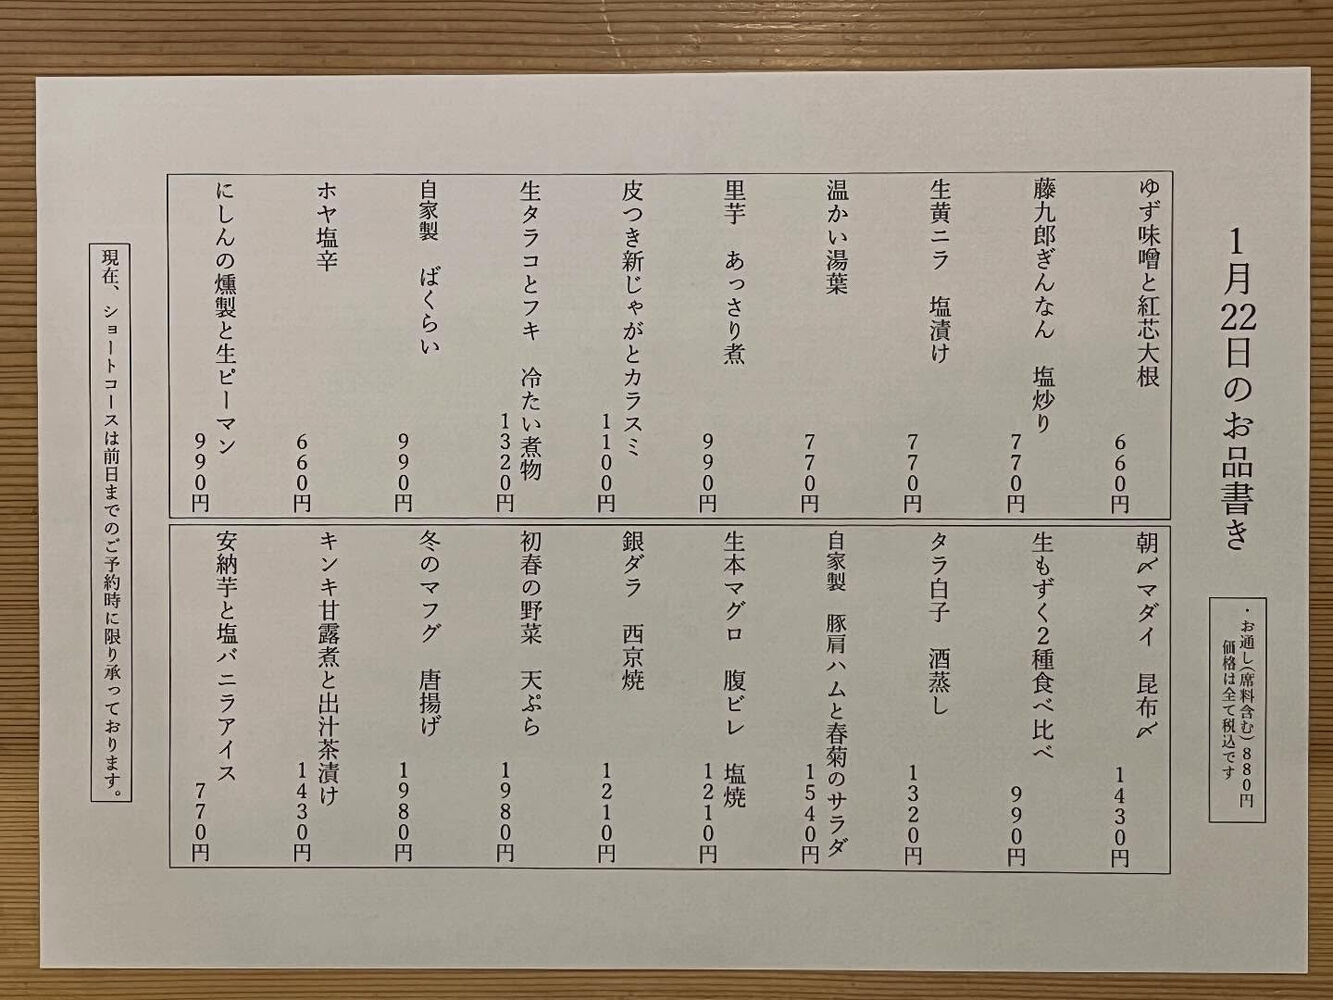 1月22日のお品書き
・お通し(席料含む)880円
価格は全て税込です
ゆず味噌と紅芯大根
660円
藤九郎ぎんなん 塩炒り
770円
生黄ニラ 塩漬け
770円
温かい湯葉
770円
里芋 あっさり煮
990円
皮つき新じゃがとカラスミ
1100円
生タラコとフキ 冷たい煮物
1320円
自家製 ばくらい
990円
ホヤ塩辛
660円
にしんの燻製と生ピーマン
990円
朝〆マダイ 昆布〆
1430円
生もずく2種食べ比べ
990円
タラ白子 酒蒸し
1320円
自家製 豚肩ハムと春菊のサラダ
1540円
生本マグロ 腹ビレ 塩焼
1210円
銀ダラ 西京焼
1210円
初春の野菜 天ぷら
1980円
冬のマフグ 唐揚げ
1980円
キンキ甘露煮と出汁茶漬け
1430円
安納芋と塩バニラアイス
770円
現在、ショートコースは前日までのご予約時に限り承っております。